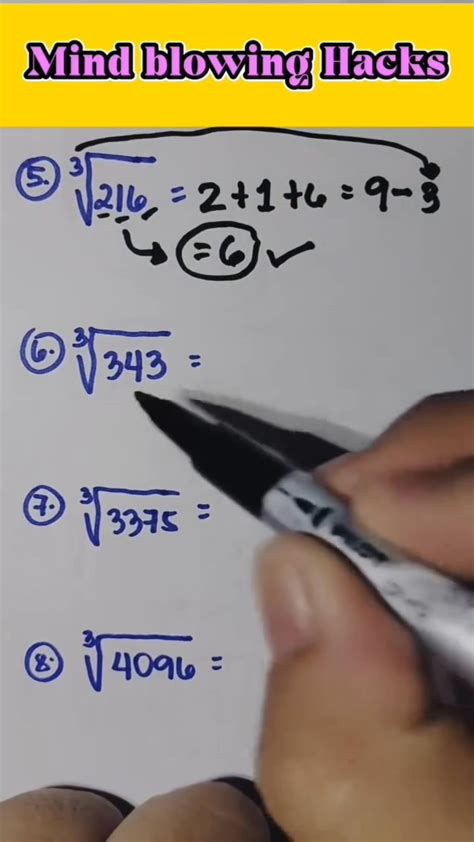 Mind blowing Hacks
5. ∛216 = 2+1+6 = 9-3
=6 ✓
6. ∛343 =
7. ∛3375 =
8. ∛4096 =